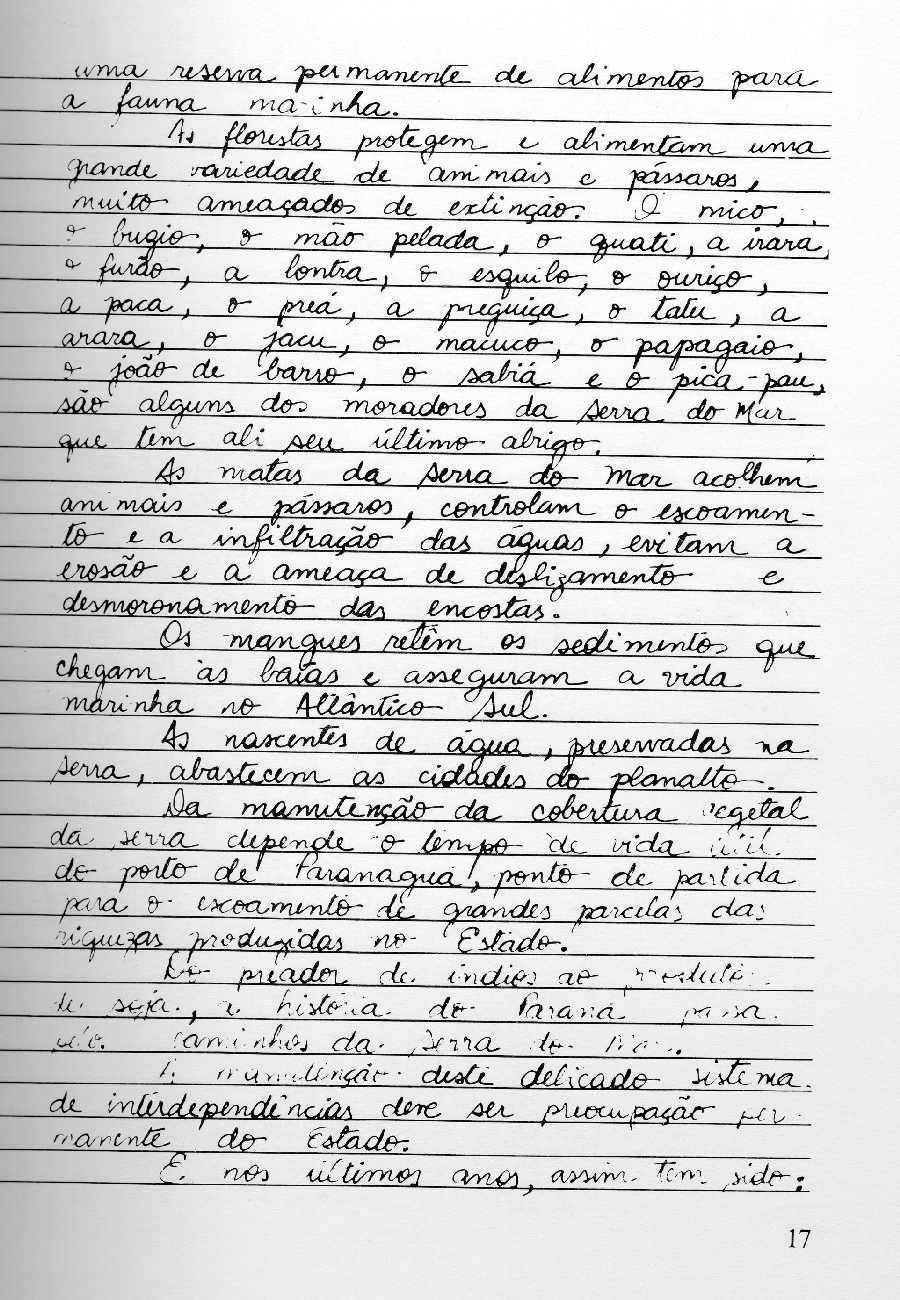 uma reserva permanente de alimentos para
a fauna marinha.
As florestas protegem e alimentam uma
grande variedade de animais e pássaros,
muito ameaçados de extinção. O mico,
o bugio, o mão pelada, o quati, a irara,
o furão, a lontra, o esquilo, o ouriço,
a paca, o preá, a preguiça, o tatu, a
arara, o jacu, o macuco, o papagaio,
o joão de barro, o sabiá e o pica-pau,
são alguns dos moradores da Serra do Mar
que tem ali seu último abrigo.
As matas da Serra do Mar acolhem
animais e pássaros, controlam o escoamen-
to e a infiltração das águas, evitam a
erosão e a ameaça de deslizamento e
desmoronamento das encostas.
Os mangues retêm os sedimentos que
chegam às baías e asseguram a vida
marinha no Atlântico Sul.
As nascentes de água, preservadas na
Serra, abastecem as cidades do planalto.
Da manutenção da cobertura vegetal
da serra depende o tempo de vida útil
do porto de Paranaguá, ponto de partida
para o escoamento de grandes parcelas das
riquezas produzidas no Estado.
Do preador de índios ao
de soja, a história do Paraná passa
caminhos da Serra do Mar.
A manutenção deste delicado sistema
de interdependências deve ser preocupação per-
manente do Estado.
E nos últimos anos, assim tem sido:
17